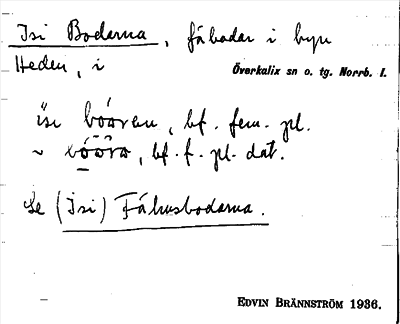 Isi Bodarna, fäbodar i byn
Heden, i Överkalix sn o. tg. Norrb. l.
isi bóåren, bf. fem. pl.
~ bf. f. pl. dat.
Se (Isi) Fähusbodarna.
EDVIN BRÄNNSTRÖM 1936.